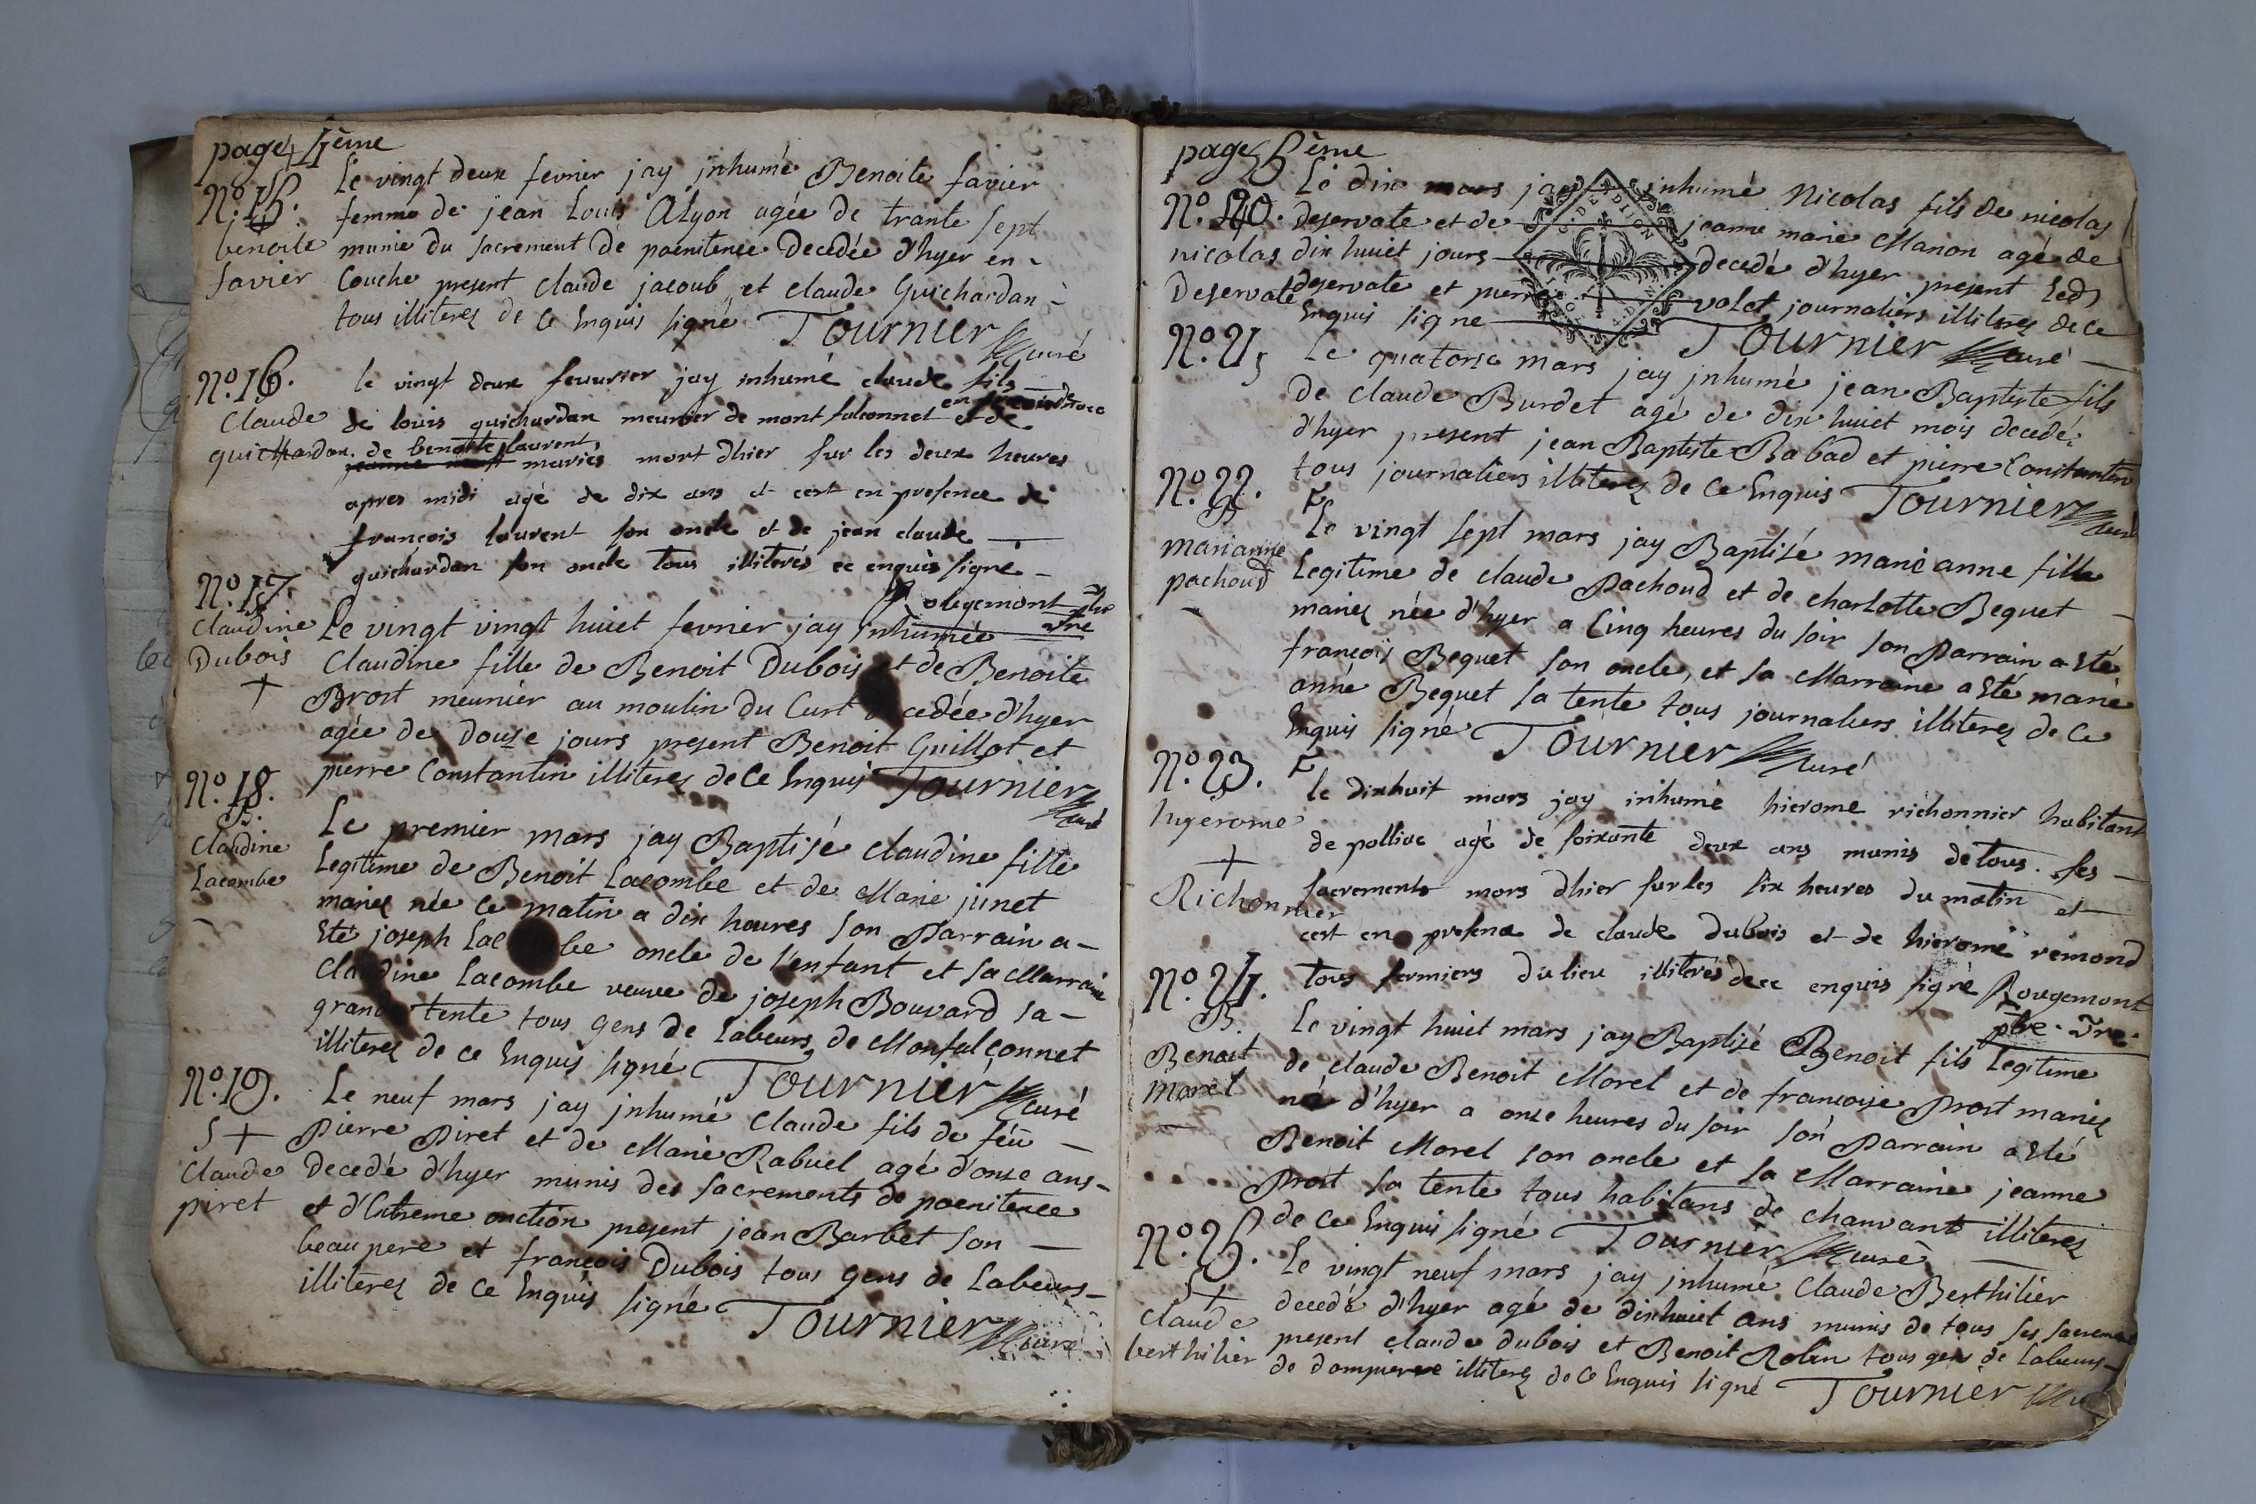 page 4ème
No. 15.
benoite
favier
Le vingt deux fevrier jay jnhumé Benoite favier
femme de jean Louis Alyon agée de trante sept
munie du sacrement de poenitence Decedée d'hyer en-
Couche present Claude jacoub et Claude Guichardan-
tous illiterez de Ce Enquis signé Tournier curé
No. 16.
Claude
quichardan.
le vingt deux fevurier jay inhumé claude fils
de louis quichardan meunier de mont falconnet et de
de benoitte laurent
mariés mort dhier sur les deux heures
apres midi agé de dix ans et cert en presence de
françois laurent son oncle et de jean claude
quichardan son oncle tous illiterés ce enquis signé -
No. 17.
Claudine
Dubois
+
Le vingt vingt huiet fevrier jay jnhumée
Claudine fille de Benoit Dubois et de Benoite
Brost meunier au moulin du Curt cedée d'hyer
agée de Douse jours present Benoit Guillot et
pierre Constantin illiterez de Ce Enquis Tournier curé
No. 18.
B.
Claudine
Lacombe
Le premier mars jay Baptisé Claudine fille
Legitime de Benoit Lacombe et de Marie junet
mariez née Ce matin a dix heures son Parrain a-
Eté joseph Lac be oncle de l'enfant et sa Marraine
Claudine Lacombe veuve de joseph Bouvard sa-
grand tente tous gens de Labeurs de Monfalconnet
illiterez de Ce Enquis signé Tournier curé
No. 19.
S +
Claude
piret
Le neuf mars jay jnhumé Claude fils de féu
Pierre Piret et de Marie Rabuel agé d'onse ans-
Decedé d'hyer munis des sacrements de poenitence
et d'Extreme onction present jean Barbet son
beau pere et françois Dubois tous gens de Labeurs-
illiterez de Ce Enquis signé Tournier curé
page 5ème
No. 20.
nicolas
Deservate
Le dix mars jay jnhumé Nicolas fils de nicolas
deservate et de jeanne marie Manon agé de
dix huiet jours decedé d'hyer present Led
deservate et pierre volet journaliers illiterez de Ce
Enquis signe Tournier curé
No. 21
Le quatorse mars jay jnhumé jean Baptiste fils
de Claude Burdet agé de dix huiet mois decedé
d'hyer present jean Baptiste Rabad et pierre Constantin
tous journaliers illiterez de Ce Enquis Tournier curé
No. 22.
B
marianne
pachoud
Le vingt sept mars jay Baptisé marie anne fille
Legitime de Claude Pachoud et de charlotte Bequet
mariez née d'hyer a Cinq heures du soir son Parrain a Eté
françois Bequet son oncle, et sa Marraine a Eté marie
anne Bequet sa tente tous journaliers illiterez de Ce
Enquis signé Tournier curé
No. 23.
hyerome
+
Richonnier
le dixhuit mars jay inhumé hierome richonnier habitant
de polliac agé de soixante deux ans munis de tous ses
sacrements mors dhier sur les six heures du matin et
cert en presence de claude Dubois et de hierome remond
tous fermiers du lieu illiterés de ce enquis signé Rougemont
ptre. vre.
No. 24.
B.
Benoit
Morel
Le vingt huiet mars jay Baptisé Benoit fils Legitime
de Claude Benoit Morel et de francoise Prost mariez
né d'hyer a onze heures du soir son Parrain a Eté
Benoit Morel son oncle et sa Marraine jeanne
Prost sa tente tous habitans de chanvant illiterez
de Ce Enquis signé Tournier curé
No. 25.
S +
Claude
berthilier
Le vingt neuf mars jay jnhumé Claude Berthilier
decedé d'hyer agé de dixhuiet ans munis de tous ses sacremens
present Claude Dubois et Benoit Robin tous gens de Labeurs-
de dompierre illiterez de Ce Enquis signé Tournier